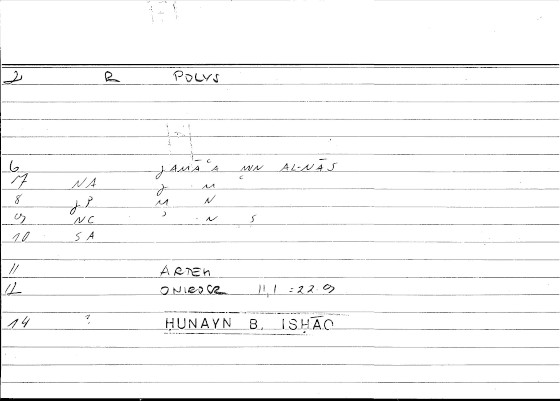 2 R POLVS
6 ǧAMĀʿA MN AL-NĀS
7 NA ǧ M ʿ
8 ǧP M N
9 NC ʾ N S
10 SA
11 ARTEM
12 ONIROCR 11,1 :22.9
14 ? ḤUNAYN B. ISḤĀQ